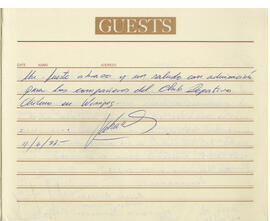 GUESTS
DATE NAME ADDRESS
Un fuerte abrazo y un saludo con admiración
para los compañeros del Club Deportivo
Chileno en Winnipeg